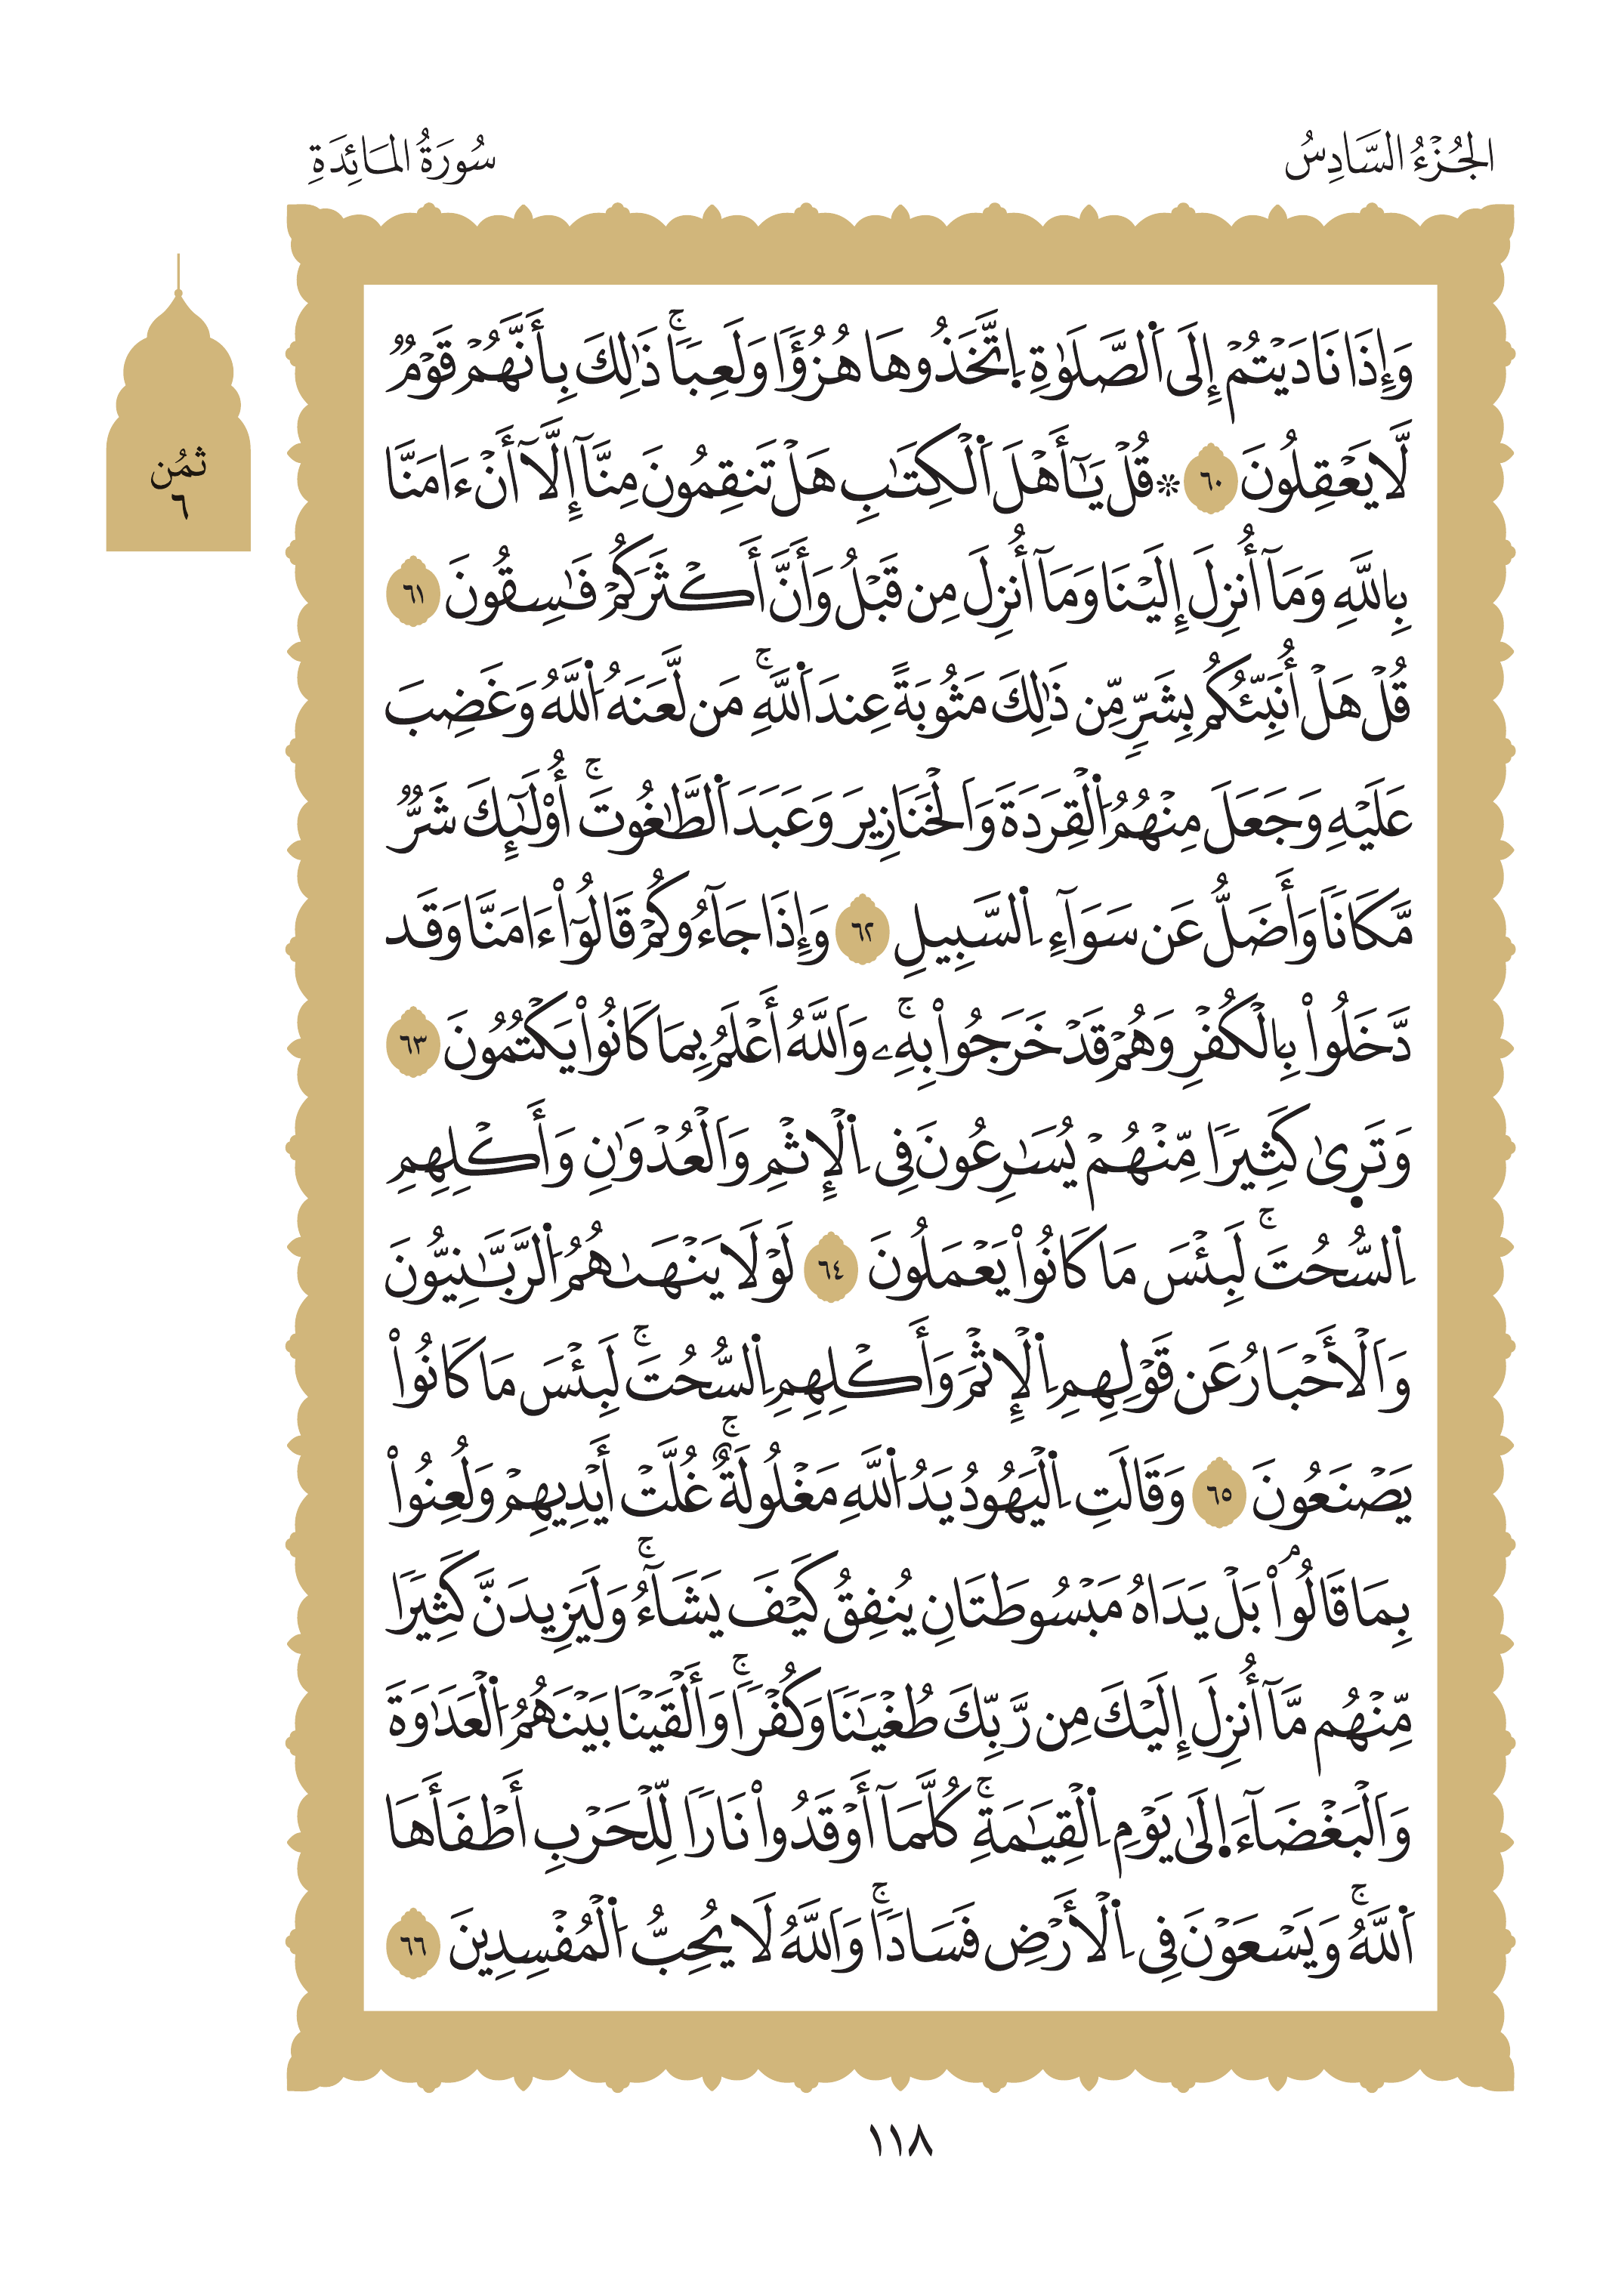 الجُزْءُ السَّادِسُ
سُورَةُ المَائِدَةِ
ثمُن
٦
وَإِذَا نَادَيْتُمْ إِلَى اَ۬لصَّلَوٰةِ اِ۪تَّخَذُوهَا هُزُؤاٗ وَلَعِباٗۚ ذَٰلِكَ بِأَنَّهُمْ قَوْمٞ
لَّا يَعْقِلُونَ ٦٠ ۞ قُلْ يَٰٓأَهْلَ اَ۬لْكِتَٰبِ هَلْ تَنقِمُونَ مِنَّآ إِلَّآ أَنْ ءَامَنَّا
بِاللَّهِ وَمَآ أُنزِلَ إِلَيْنَا وَمَآ أُنزِلَ مِن قَبْلُ وَأَنَّ أَكْثَرَكُمْ فَٰسِقُونَ ٦١
قُلْ هَلْ أُنَبِّئُكُم بِشَرّٖ مِّن ذَٰلِكَ مَثُوبَةً عِندَ اَ۬للَّهِۚ مَن لَّعَنَهُ اُ۬للَّهُ وَغَضِبَ
عَلَيْهِ وَجَعَلَ مِنْهُمُ اُ۬لْقِرَدَةَ وَالْخَنَازِيرَ وَعَبَدَ اَ۬لطَّٰغُوتَۚ أُوْلَٰٓئِكَ شَرّٞ
مَّكَاناٗ وَأَضَلُّ عَن سَوَآءِ اِ۬لسَّبِيلِ ٦٢ وَإِذَا جَآءُوكُمْ قَالُوٓاْ ءَامَنَّا وَقَد
دَّخَلُواْ بِالْكُفْرِ وَهُمْ قَدْ خَرَجُواْ بِهِۦۚ وَاللَّهُ أَعْلَمُ بِمَا كَانُواْ يَكْتُمُونَ ٦٣
وَتَر۪ىٰ كَثِيراٗ مِّنْهُمْ يُسَٰرِعُونَ فِى اِ۬لْإِثْمِ وَالْعُدْوَٰنِ وَأَكْلِهِمِ
اِ۬لسُّحُتَۚ لَبِئْسَ مَا كَانُواْ يَعْمَلُونَ ٦٤ لَوْلَا يَنْهَىٰهُمُ اُ۬لرَّبَّٰنِيُّونَ
وَالْأَحْبَارُ عَن قَوْلِهِمِ اِ۬لْإِثْمَ وَأَكْلِهِمِ اِ۬لسُّحُتَۚ لَبِئْسَ مَا كَانُواْ
يَصْنَعُونَ ٦٥ وَقَالَتِ اِ۬لْيَهُودُ يَدُ اُ۬للَّهِ مَغْلُولَةٌۚ غُلَّتْ أَيْدِيهِمْ وَلُعِنُواْ
بِمَا قَالُواْۘ بَلْ يَدَاهُ مَبْسُوطَتَانِ يُنفِقُ كَيْفَ يَشَآءُۚ وَلَيَزِيدَنَّ كَثِيراٗ
مِّنْهُم مَّآ أُنزِلَ إِلَيْكَ مِن رَّبِّكَ طُغْيَٰناٗ وَكُفْراٗۚ وَأَلْقَيْنَا بَيْنَهُمُ اُ۬لْعَدَٰوَةَ
وَالْبَغْضَآءَ اِ۪لَىٰ يَوْمِ اِ۬لْقِيَٰمَةِۚ كُلَّمَآ أَوْقَدُواْ نَاراٗ لِّلْحَرْبِ أَطْفَأَهَا
اَ۬للَّهُۚ وَيَسْعَوْنَ فِى اِ۬لْأَرْضِ فَسَاداٗۚ وَاللَّهُ لَا يُحِبُّ اُ۬لْمُفْسِدِينَ ٦٦
١١٨